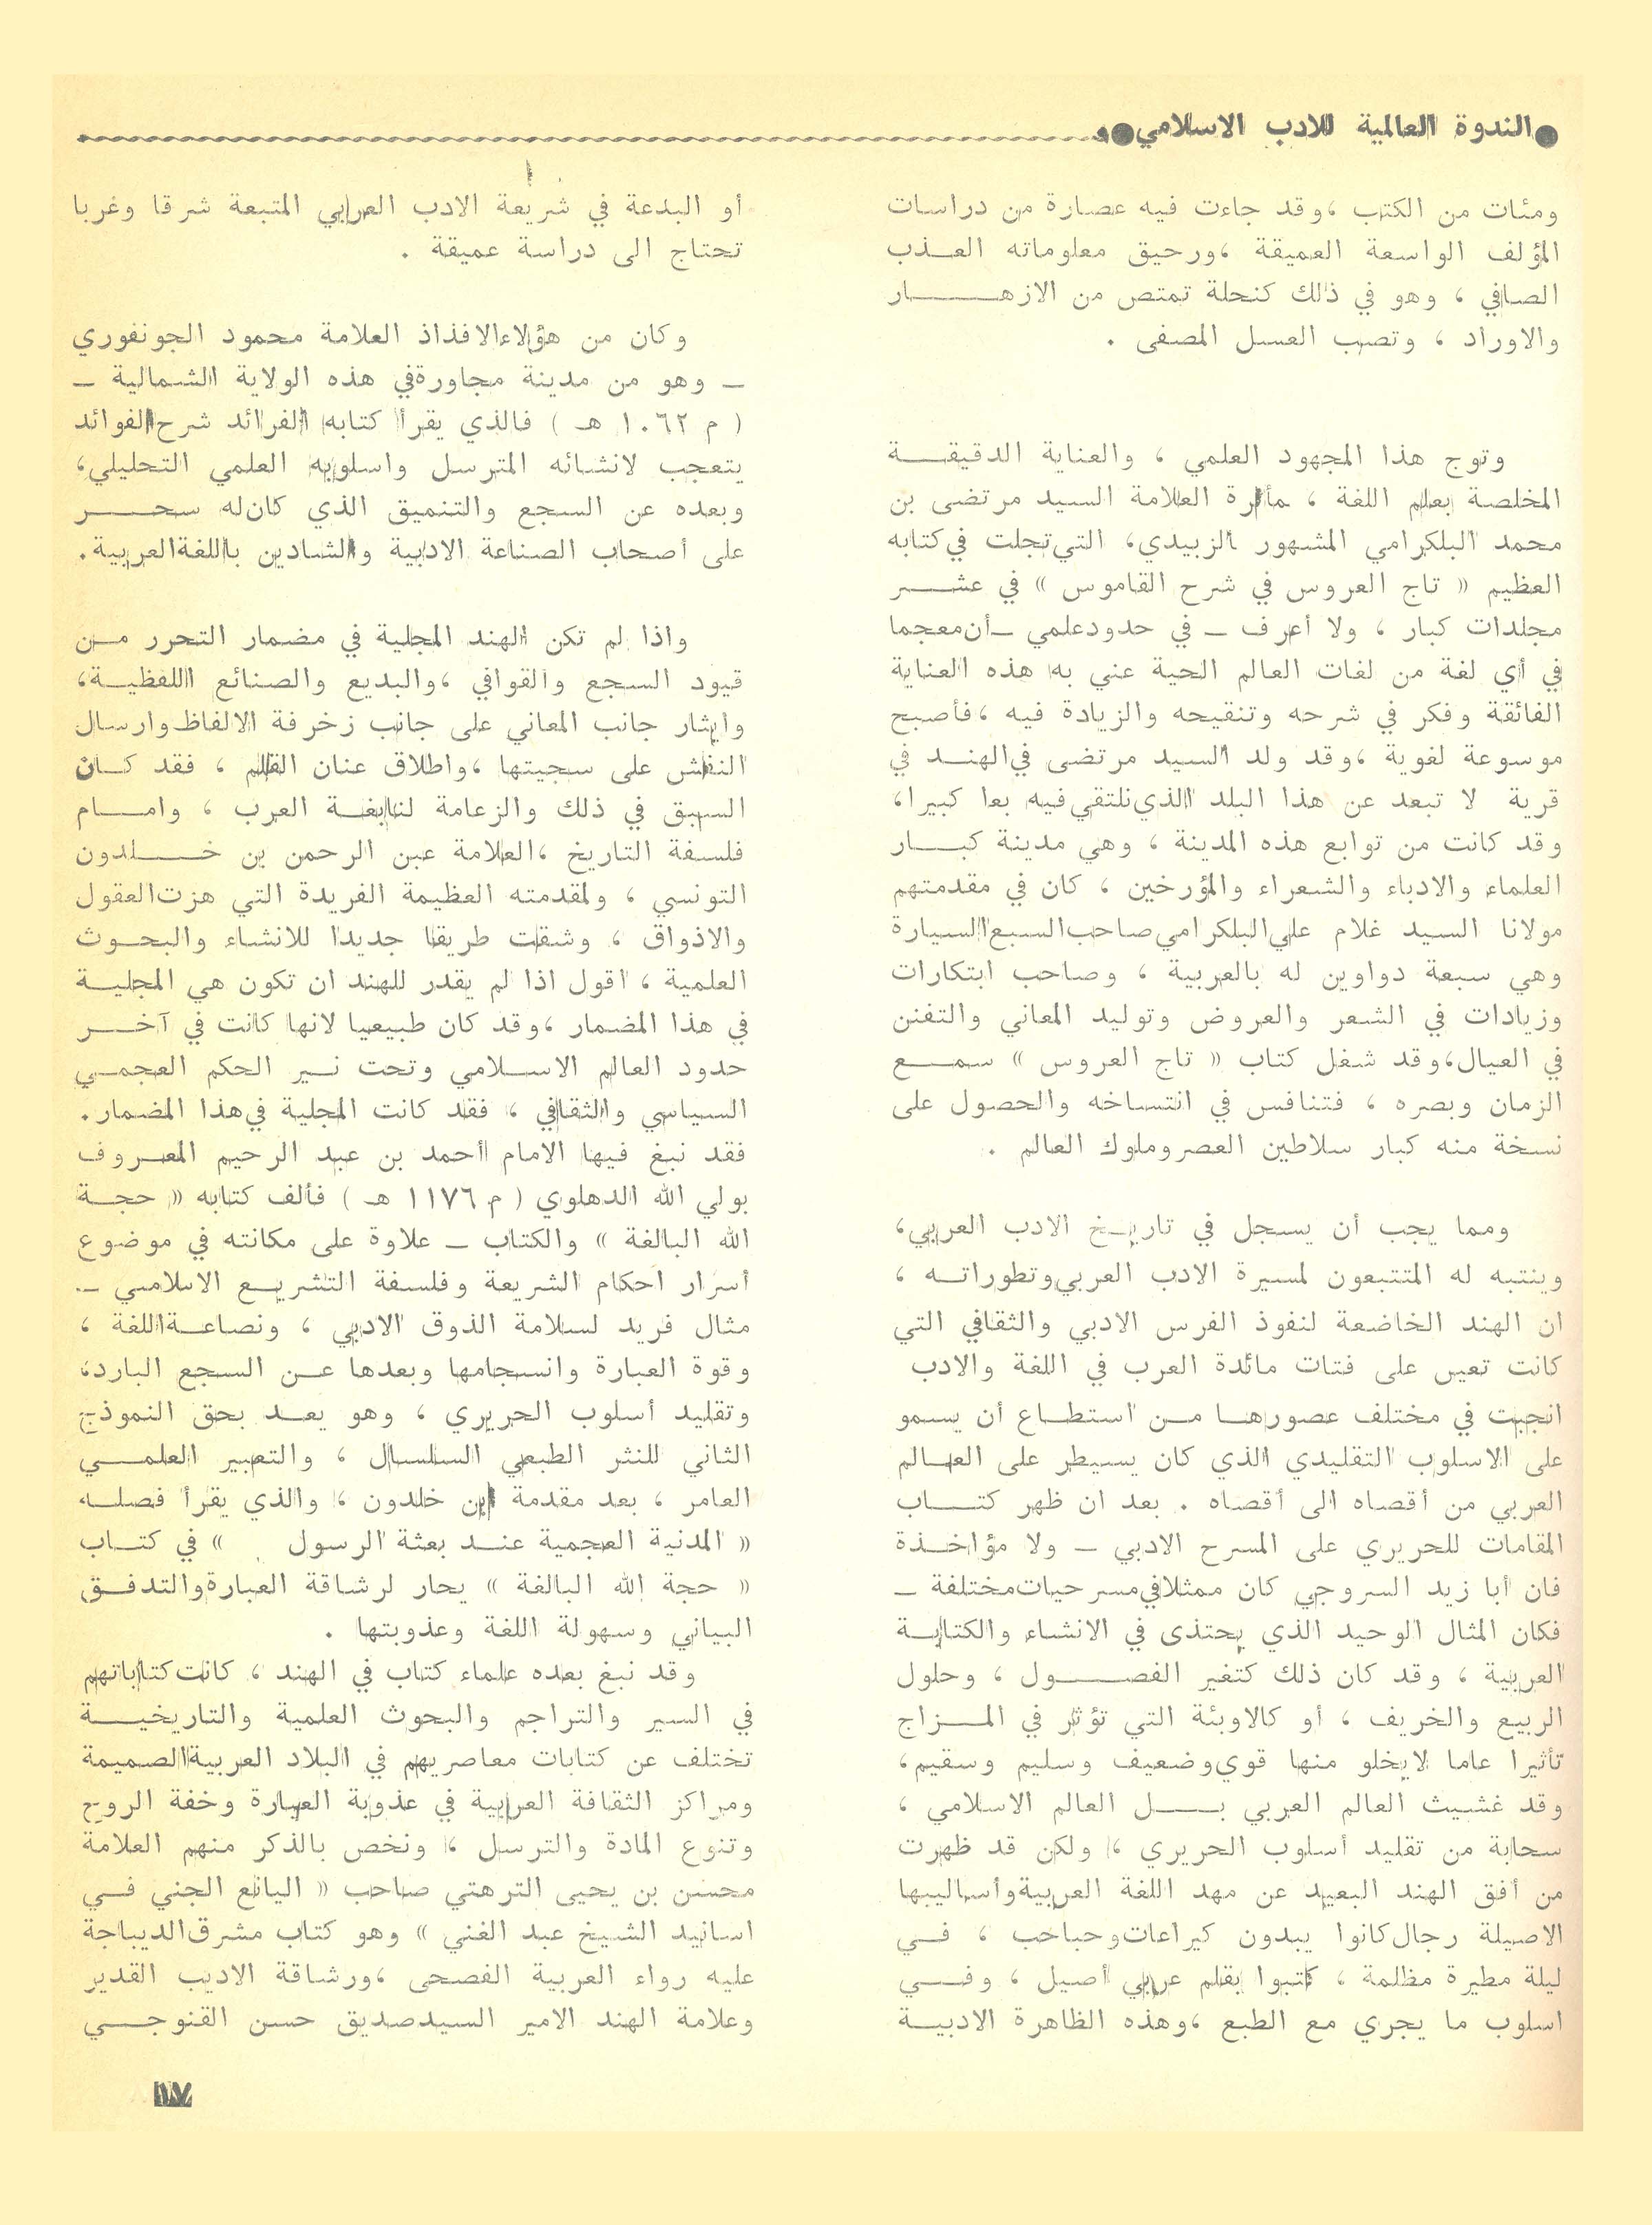 ●الندوة العالمية للادب الاسلامي●
ومئات من الكتب ،وقد جاءت فيه عصارة من دراسات
المؤلف الواسعة العميقة ،ورحيق معلوماته العـذب
الصافي ، وهو في ذلك كنحلة تمتص من الازهـــــار
والاوراد ، وتصب العسل المصفى .
وتوج هذا المجهود العلمي ، والعناية الدقيقـــة
المخلصة بعلم اللغة ، مأثرة العلامة السيد مرتضى بن
محمد البلكرامي المشهور بالزبيدي، التي تجلت في كتابه
العظيم « تاج العروس في شرح القاموس » في عشـــر
مجلدات كبار ، ولا أعرف ـ في حدود علمي ـ أن معجما
في أي لغة من لغات العالم الحية عني به هذه العناية
الفائقة وفكر في شرحه وتنقيحه والزيادة فيه ،فأصبح
موسوعة لغوية ،وقد ولد السيد مرتضى في الهنـد في
قرية لا تبعد عن هذا البلد الذي نلتقي فيه بعا كبيرا،
وقد كانت من توابع هذه المدينة ، وهي مدينة كبـــار
العلماء والادباء والشعراء والمؤرخين ، كان في مقدمتهم
مولانا السيد غلام علي البلكرامي صاحب السبع السيارة
وهي سبعة دواوين له بالعربية ، وصاحب ابتكارات
وزيادات في الشعر والعروض وتوليد المعاني والتفنن
في العيال،وقد شغل كتاب « تاج العروس » سمـــع
الزمان وبصره ، فتنافس في انتساخه والحصول على
نسخة منه كبار سلاطين العصر وملوك العالم .
ومما يجب أن يسجل في تاريـخ الادب العربي،
وينتبه له المتتبعون لمسيرة الادب العربي وتطوراتـه ،
ان الهند الخاضعة لنفوذ الفرس الادبي والثقافي التي
كانت تعيس على فتات مائدة العرب في اللغة والادب
انجبت في مختلف عصورهـا مـن استطـاع أن يسمو
على الاسلوب التقليدي الذي كان يسيطر على العـالم
العربي من أقصاه الى أقصاه . بعد ان ظهر كتـــاب
المقامات للحريري على المسرح الادبي ـ ولا مؤاخـذة
فان أبا زيد السروجي كان ممثلا في مسرحيات مختلفة ـ
فكان المثال الوحيد الذي يحتذى في الانشاء والكتابـة
العربية ، وقد كان ذلك كتغير الفصـــــول ، وحلول
الربيع والخريف ، أو كالاوبئة التي تؤثر في المـــزاج
تأثيرا عاما لا يخلو منها قوي وضعيف وسليم وسقيم،
وقد غشيت العالم العربي بـــل العالم الاسلامي ،
سحابة من تقليد أسلوب الحريري ، ولكن قد ظهرت
من أفق الهند البعيد عن مهد اللغة العربية وأساليبها
الاصيلة رجال كانوا يبدون كيراعات وحباحب ، فـي
ليلة مطيرة مظلمة ، كتبوا بقلم عربي أصيل ، وفـــي
اسلوب ما يجري مع الطبع ،وهذه الظاهرة الادبيـــة
أو البدعة في شريعة الادب العرابي المتبعة شرقا وغربا
تحتاج الى دراسة عميقة .
وكان من هؤلاء الافذاذ العلامة محمود الجونفوري
ـ وهو من مدينة مجاورة في هذه الولاية الشمالية ـ
( م ١٠٦٢ هـ ) فالذي يقرأ كتابه الفرائد شرح الفوائد
يتعجب لانشائه المترسل واسلوبه العلمي التحليلي،
وبعده عن السجع والتنميق الذي كان له سحـــر
على أصحاب الصناعة الادبية والشادين باللغة العربية.
واذا لم تكن الهند المجلية في مضمار التحرر مـن
قيود السجع والقوافي ،والبديع والصنائع اللفظيـة،
وايثار جانب المعاني على جانب زخرفة الالفاظ وارسال
النفس على سجيتها ،واطلاق عنان القلم ، فقد كـان
السبق في ذلك والزعامة لنابغـة العرب ، وامـــام
فلسفة التاريخ ،العلامة عبن الرحمن بن خـــلدون
التونسي ، ولمقدمته العظيمة الفريدة التي هزت العقول
والاذواق ، وشقت طريقا جديدا للانشاء والبحـوث
العلمية ، اقول اذا لم يقدر للهند ان تكون هي المجليـة
في هذا المضمار ،وقد كان طبيعيا لانها كانت في آخـــر
حدود العالم الاســلامي وتحت نـير الحكم العجمـي
السياسي والثقافي ، فقد كانت المجلية في هذا المضمار.
فقد نبغ فيها الامام أحمد بن عبد الرحيم المعـروف
بولي الله الدهلوي ( م ١١٧٦ هـ ) فألف كتابه « حجـة
الله البالغة » والكتاب ـ علاوة على مكانته في موضوع
أسرار احكام الشريعة وفلسفة التشريـع الاسلامـي ـ
مثال فريد لسلامة الذوق الادبي ، ونصاعـة اللغة ،
وقوة العبارة وانسجامها وبعدها عـن السجع البارد،
وتقليد أسلوب الحريري ، وهو يعـد بحق النموذج
الثاني للنثر الطبعي السلسال ، والتعبير العلمــي
العامر ، بعد مقدمة ابن خلدون ، والذي يقرأ فصلـه
« المدنية العجمية عنـد بعثة الرسول » في كتـاب
« حجة الله البالغة » يحار لرشاقة العبارة والتدفـق
البياني وسهولة اللغة وعذوبتها .
وقد نبغ بعده علماء كتاب في الهند ، كانت كتاباتهم
في السير والتراجم والبحوث العلمية والتاريخيـــة
تختلف عن كتابات معاصريهم في البلاد العربية الصميمة
ومراكز الثقافة العربية في عذوبة العبارة وخفة الروح
وتنوع المادة والترسل ، ونخص بالذكر منهم العلامة
محسن بن يحيى الترهتي صاحب « اليانع الجني فـي
اسانيد الشيخ عبد الغني » وهو كتاب مشرق الديباجة
عليه رواء العربية الفصحى ،ورشاقة الاديب القدير
وعلامة الهند الامير السيد صديق حسن القنوجـــي